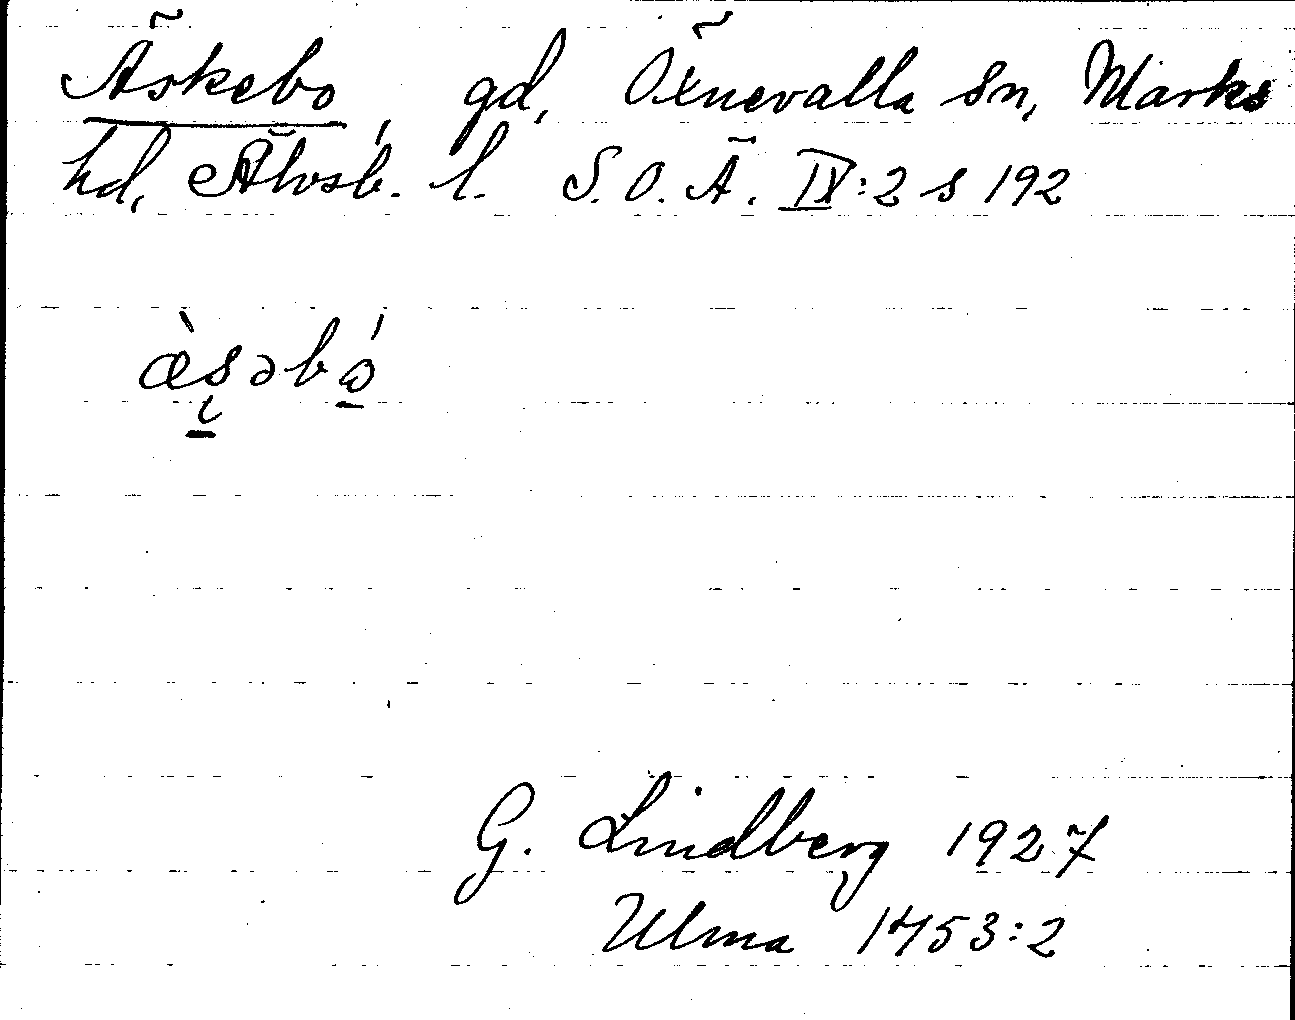 Äskebo, gd, Öxnevalla sn, Marks
hd, Älvsb. l. S.O.Ä. IX:2 s 192
æ̀səbó
G. Lindberg 1927
Ulma 1753:2